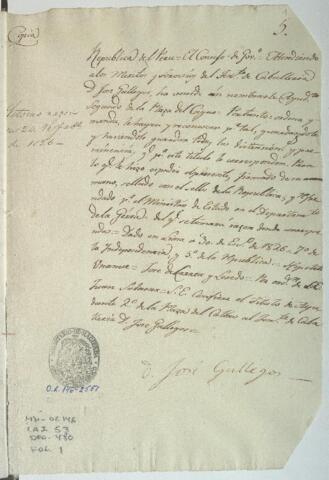 Copia
5.
Republica del Peru = El Consejo de Gov.º = Atendiendo
a los Meritos y servicios del Ten.te de Caballeria
D. José Gallegos, ha venido en nombrarle Ayud.te
Segundo de la Plaza del Callao. Por tanto: ordena y
manda, le hayan y reconozcan p.r tal, guardandole
y haciendole guardar todas las distinciones, y pre
eminencias, q.e p.r este titulo le corresponden. Para
lo q.e le hizo expedir el presente, firmado de su
mano, sellado con el sello de la Republica, y refren
dado p.r el Ministro de Estado en el Departam.to
de la Guerra. del q.e se tomará razon donde corresponda
= Dado en Lima a 30 de En.º de 1826. 7.º de
la Independencia, y 5.º de la Republica = Hipolito
Unanue = José de Larrea y Loredo = Por ord.n de S.E.
Juan Salazar = S.E. Confiere el titulo de Ayu
dante 2.º de la Plaza del Callao al Ten.te de Caba
lleria D. José Gallegos =
Tomose razon
en 20
de 1826 =
D. José Gallegos
O.L. 146-2507
MH-OL 146
CAJ 53
DOC-480
FOL. 1